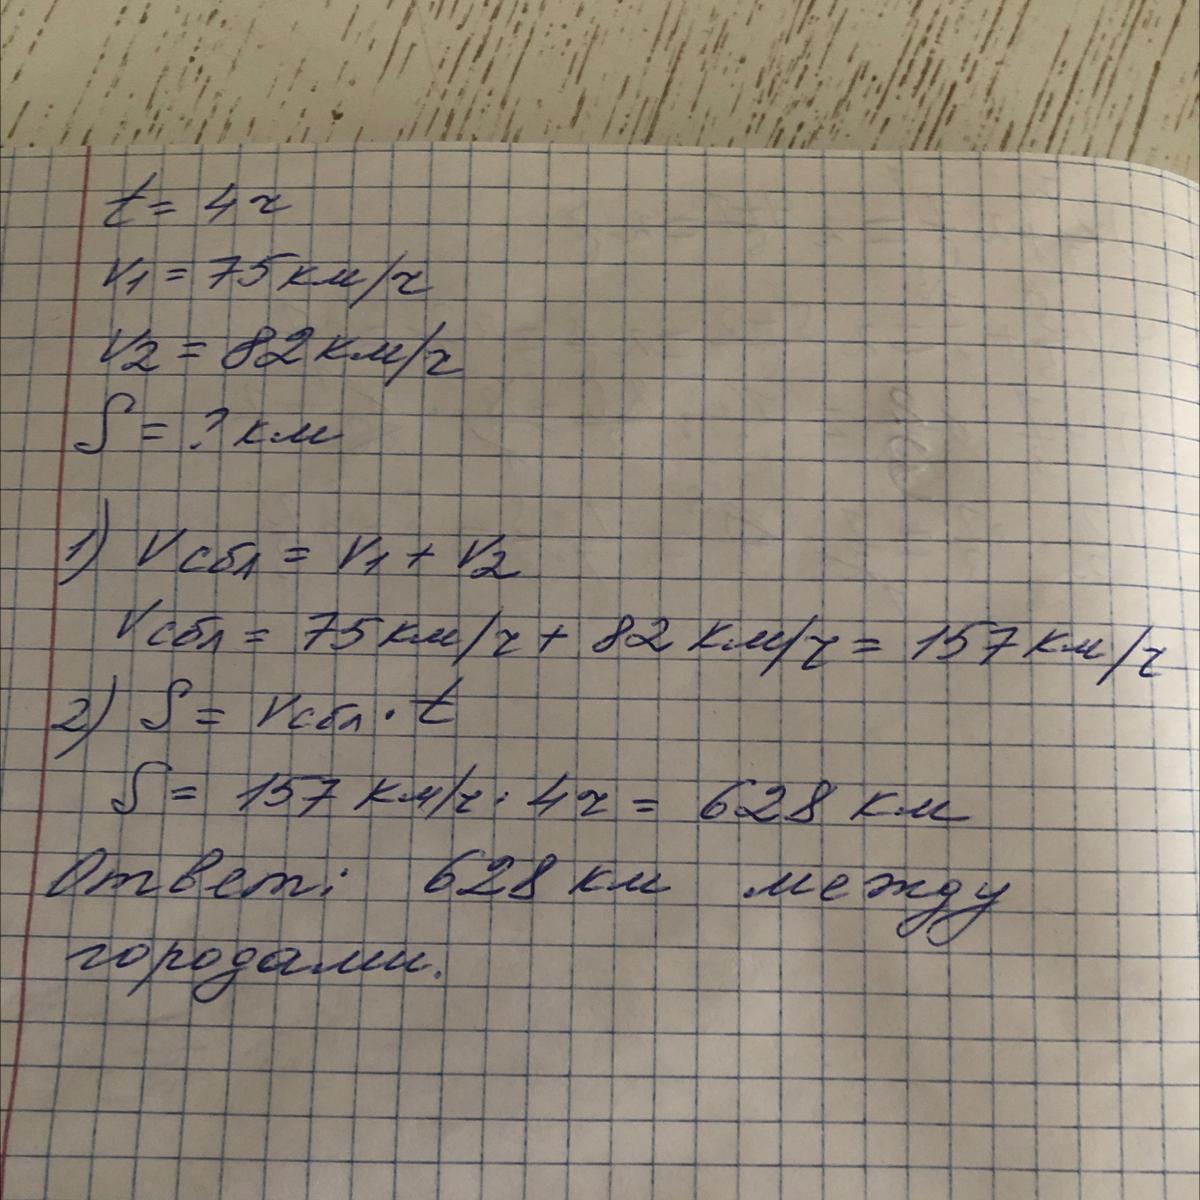 t = 4ч
v1 = 75 км/ч
v2 = 82 км/ч
S = ? км
1) Vсбл = v1 + v2
Vсбл = 75 км/ч + 82 км/ч = 157 км/ч
2) S = vсбл · t
S = 157 км/ч · 4ч = 628 км
Ответ: 628 км между
городами.